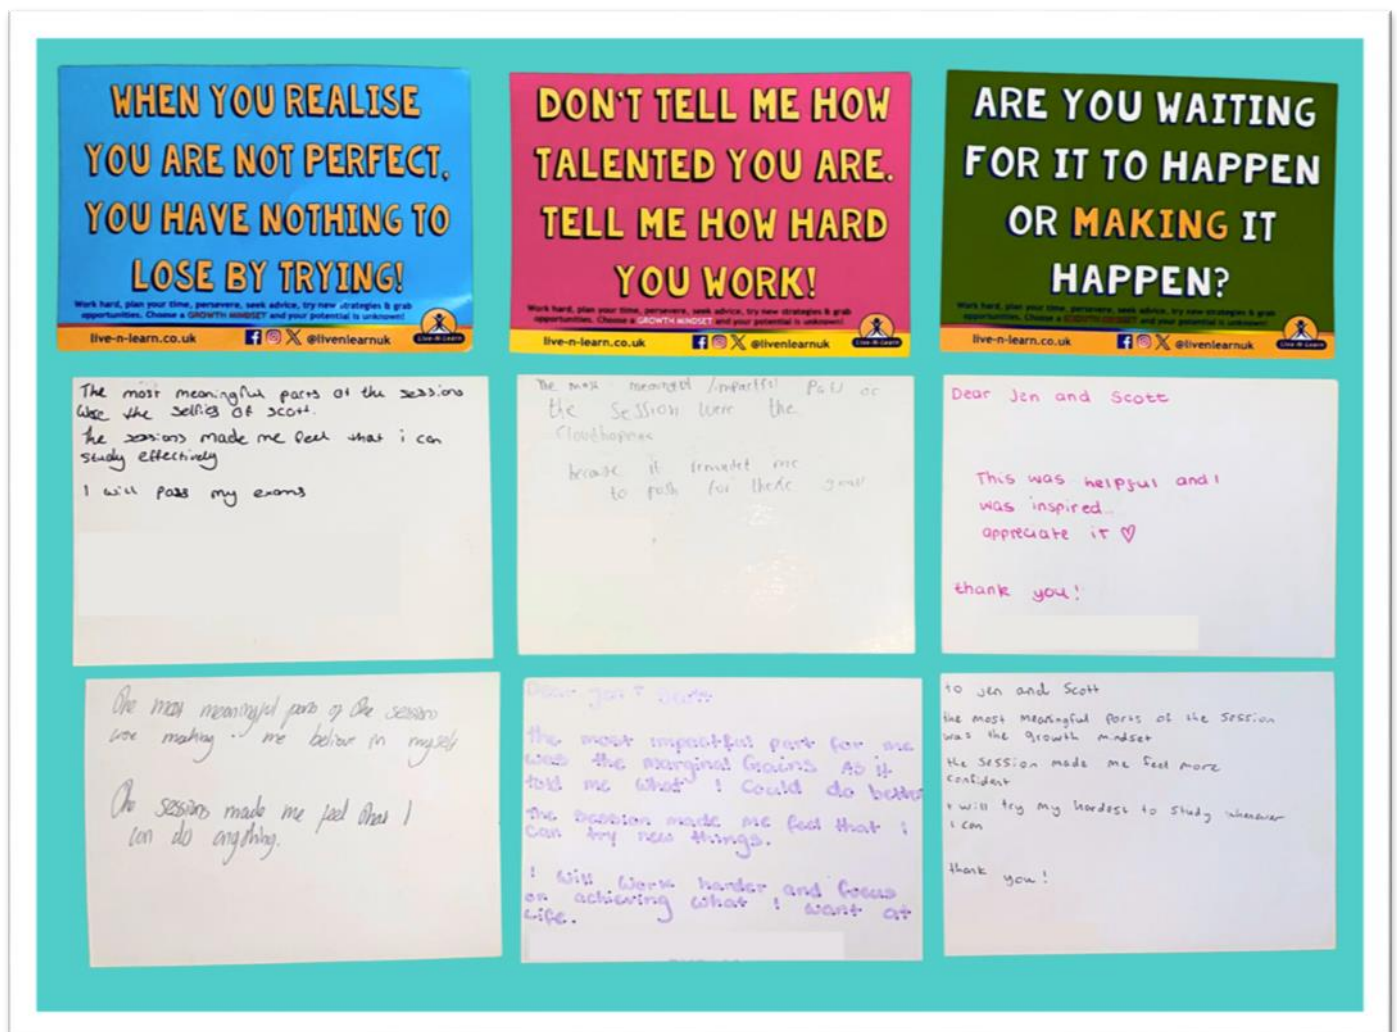 WHEN YOU REALISE
YOU ARE NOT PERFECT,
YOU HAVE NOTHING TO
LOSE BY TRYING!
Work hard, plan your time, persevere, seek advice, try new strategies & grab
opportunities. Choose a GROWTH MINDSET and your potential is unknown!
live-n-learn.co.uk @livenlearnuk Live-N-Learn
DON'T TELL ME HOW
TALENTED YOU ARE.
TELL ME HOW HARD
YOU WORK!
Work hard, plan your time, persevere, seek advice, try new strategies & grab
opportunities. Choose a GROWTH MINDSET and your potential is unknown!
live-n-learn.co.uk @livenlearnuk Live-N-Learn
ARE YOU WAITING
FOR IT TO HAPPEN
OR MAKING IT
HAPPEN?
Work hard, plan your time, persevere, seek advice, try new strategies & grab
opportunities. Choose a GROWTH MINDSET and your potential is unknown!
live-n-learn.co.uk @livenlearnuk Live-N-Learn
The most meaningful parts of the sessions
were the selfies of scott.
The sessions made me feel that i can
study effectively
I will pass my exams
The most meaningful /impactful
the session were the
because it
to push for these
Dear Jen and Scott
This was helpful and I
was inspired..
appreciate it ♡
thank you!
The most meaningful parts of the session
were making me believe in myself
The sessions made me feel that I
can do anything.
Dear Jen + Scott
the most impactful part for me
was the marginal Gains As it
told me what I could do better
The session made me feel that i
can try new things.
I will work harder and focus
on achieving what I want at
life.
to Jen and Scott
the most meaningful parts of the session
was the growth mindset
the session made me feel more
confident
i will try my hardest to study whenever
i can
thank you!